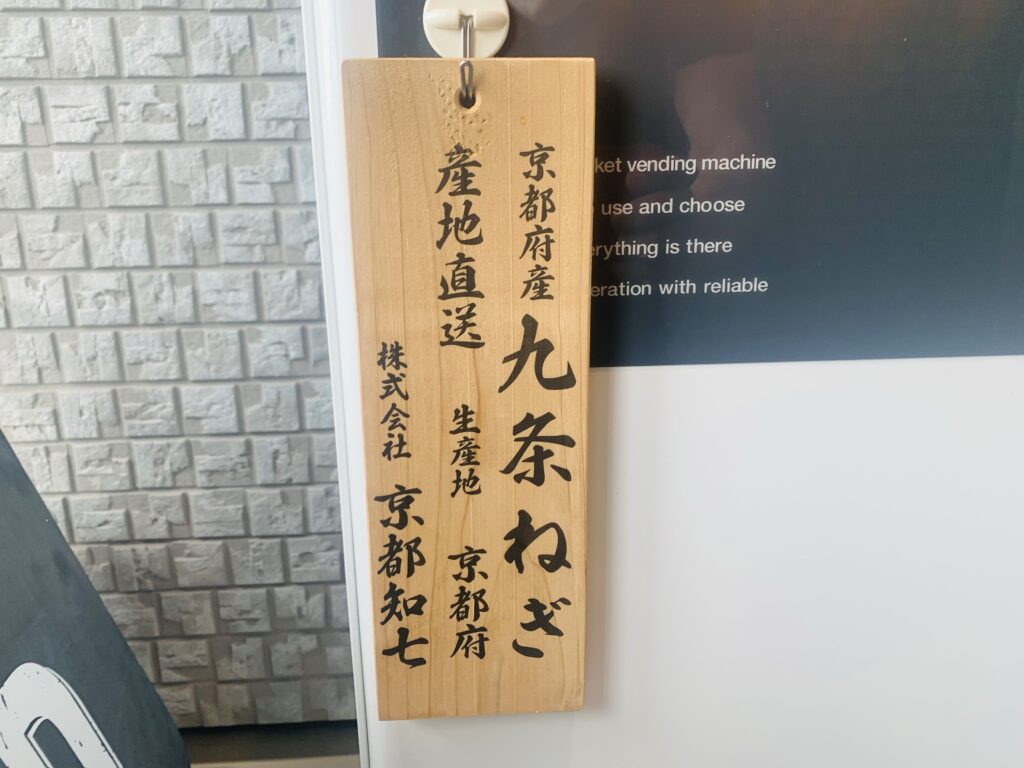 京都府産 九条ねぎ
産地直送 生産地 京都府
株式会社 京都知七
ket vending machine
use and choose
erything is there
eration with reliable